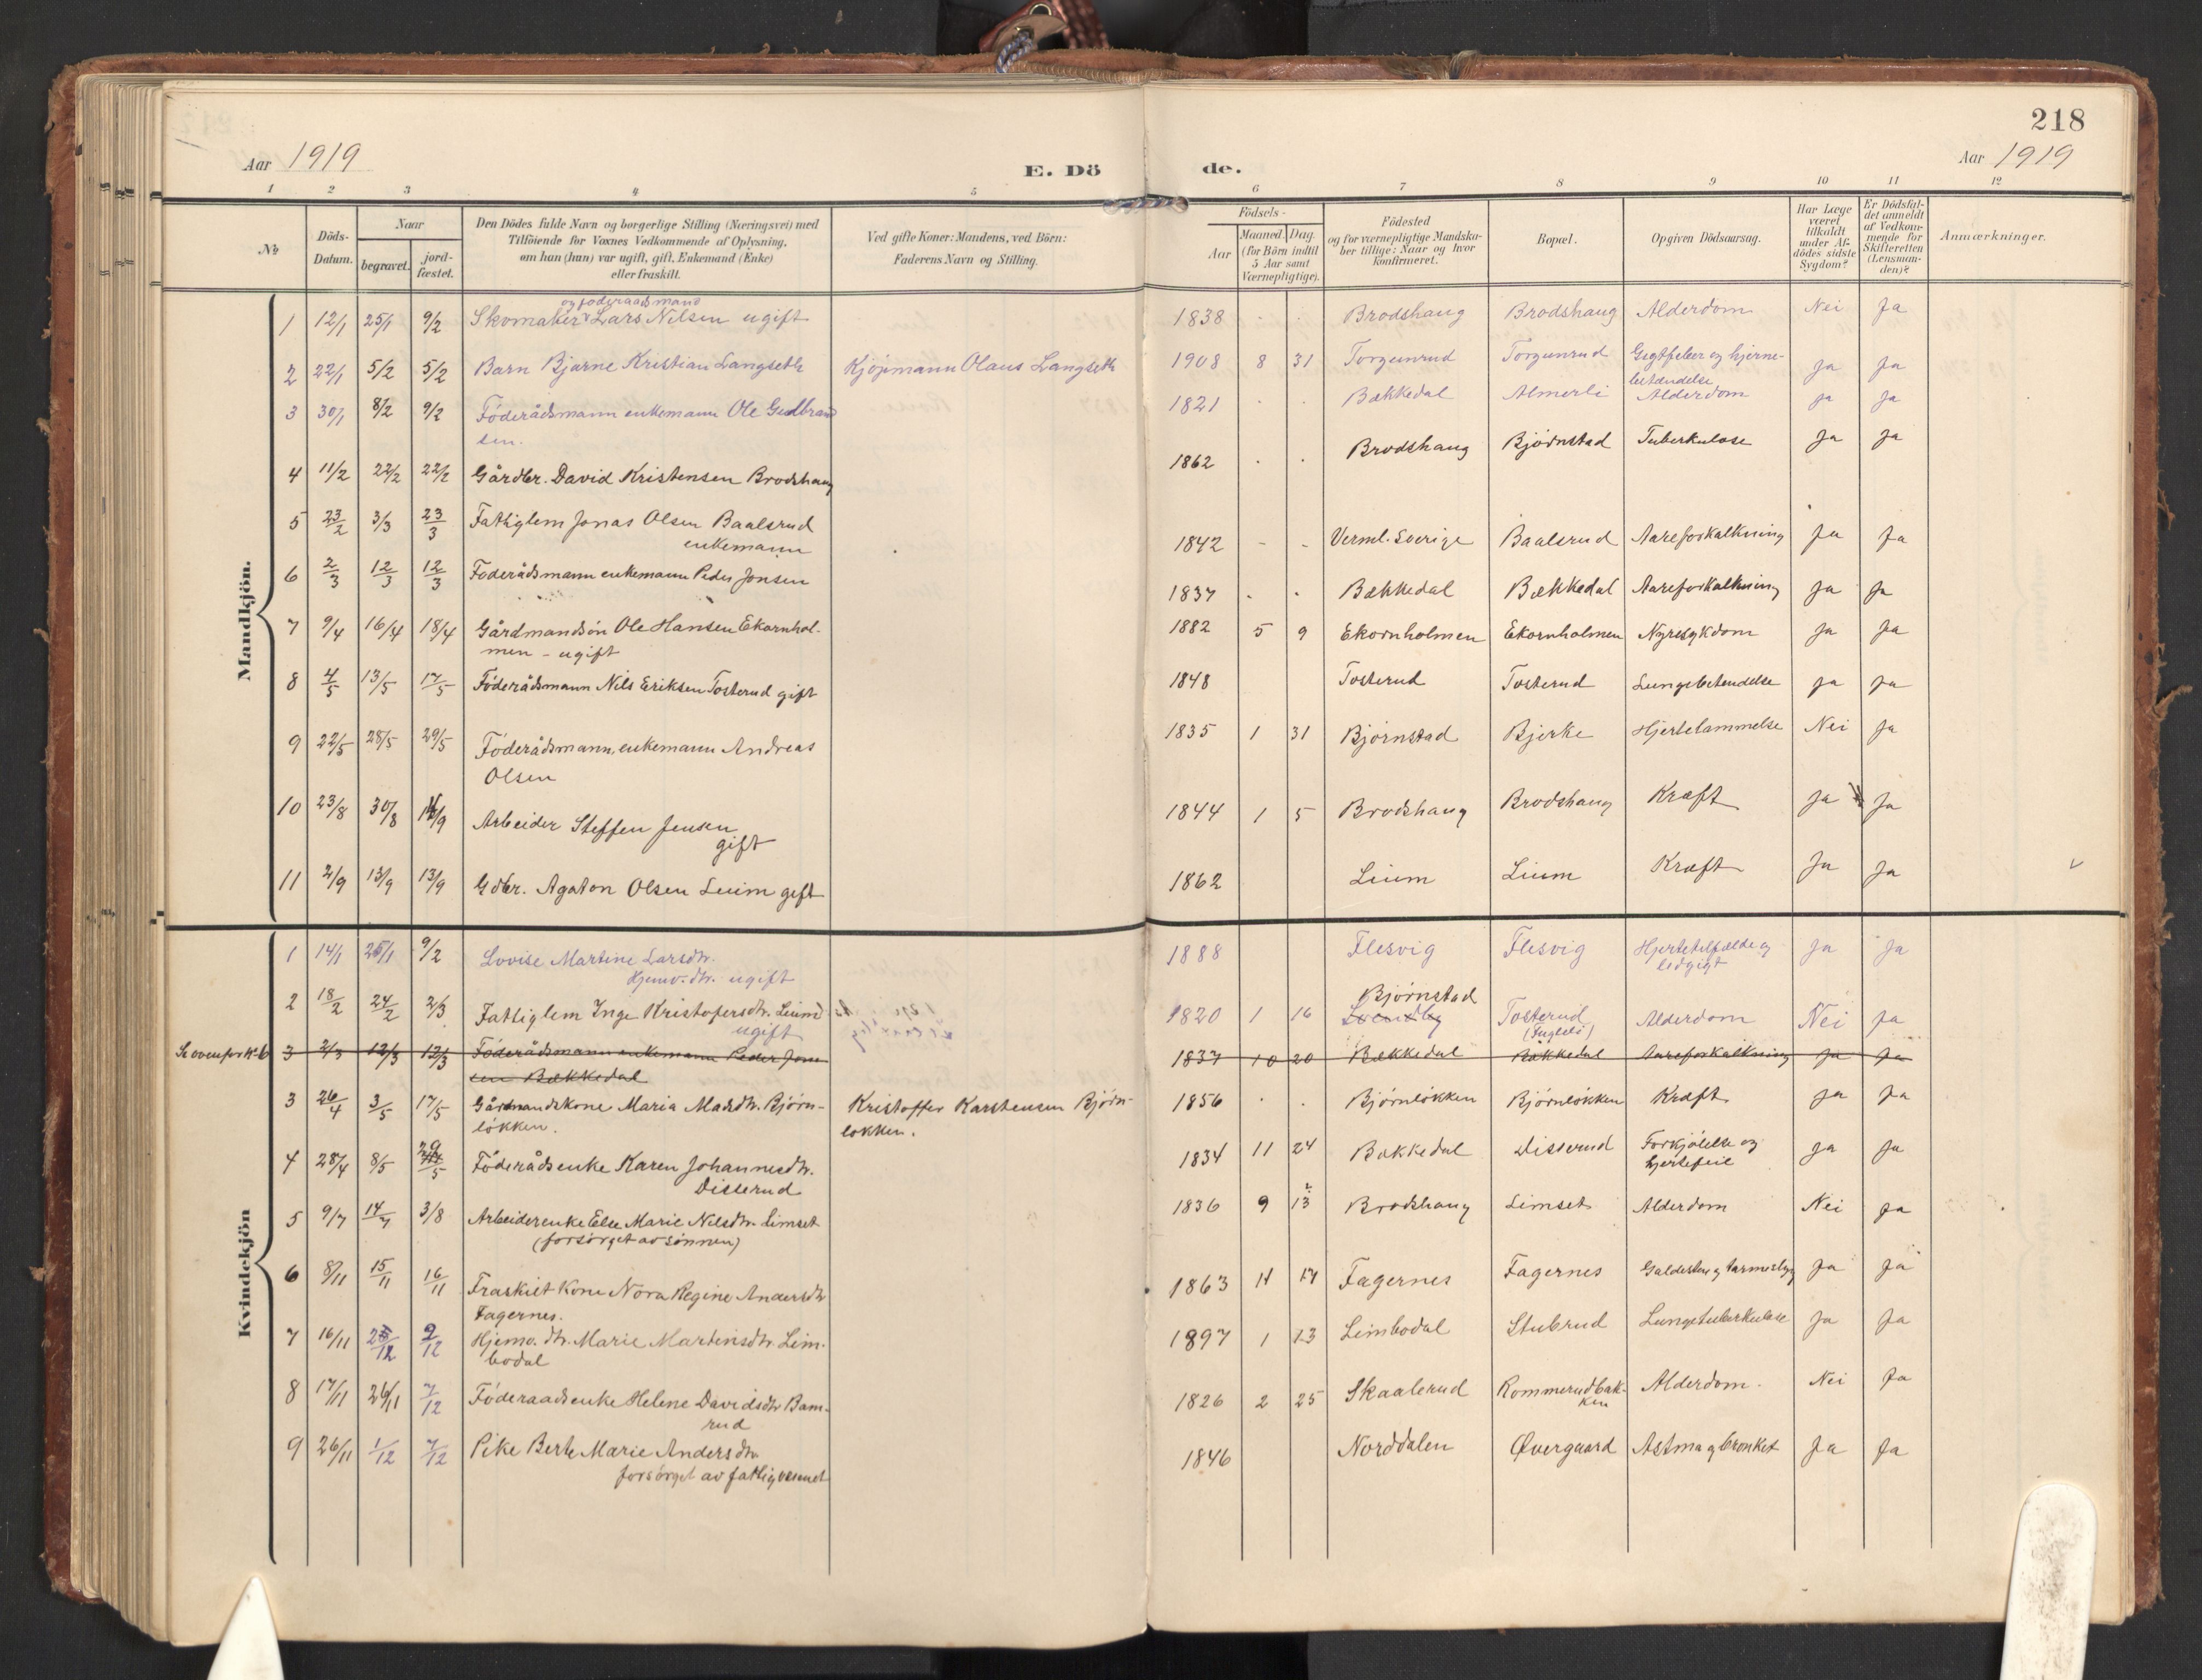 218
Aar 1919
E. Dö de.
Aar 1919
1 2 3 4 5 6 7 8 9 10 11 12
No
Döds-Datum.
Naar
begravet.
jord-fæstet.
Den Dödes fulde Navn og borgerlige Stilling (Næringsvei) med
Tilföiende for Voxnes Vedkommende af Oplysning,
om han (hun) var ugift, gift, Enkemand (Enke)
eller fraskilt.
Ved gifte Koner: Mandens, ved Börn:
Faderens Navn og Stilling.
Födsels-
Aar
Maaned. Dag.
(for Börn indtil
5 Aar samt
Værnepligtige).
Födested
og for værnepligtige Mandska-
ber tillige: Naar og hvor
konfirmeret.
Bopæl.
Opgiven Dödsaarsag.
Har Læge
været
tilkaldt
under Af-
dödes sidste
Sygdom?
Er Dödsfal-
det anmeldt
af Vedkom-
mende for
Skifteretten
(Lensman-
den)?
Anmærkninger.
Mandkjön.
og föderaadsmand
1 12/1 25/1 9/2 Skomaker Lars Nilsen ugift 1838 . . Brodshaug Brodshaug Alderdom Nei Ja
2 22/1 5/2 5/2 Barn Bjarne Kristian Langseth Kjøpmann Olaus Langseth 1908 8 31 Torgunrud Torgunrud Gigtfeber og hjerne-
betændelse Ja Ja
3 30/1 8/2 9/2 Föderådsmann enkemann Ole Gudbrand
sen. 1821 . . Bækkedal Almerli Alderdom Ja Ja
4 11/2 22/2 22/2 Gårdbr. David Kristensen Brodshaug 1862 . . Brodshaug Bjørnstad Tuberkulose Ja Ja
5 23/2 3/3 23/3 Fattiglem Jonas Olsen Baalsrud
enkemann 1842 - - Verml. Sverige Baalsrud Aareforkalkning Ja Ja
6 2/3 12/3 12/3 Föderådsmann enkemann Peder Jonsen 1837 . . Bækkedal Bækkedal Aareforkalkning Ja Ja
7 9/4 16/4 18/4 Gårdmandsön Ole Hansen Ekornhol-
men - ugift 1882 5 9 Ekornholmen Ekornholmen Nyresykdom Ja Ja
8 4/5 13/5 17/5 Föderådsmann Nils Eriksen Tosterud gift 1848 Tosterud Tosterud Lungebetendelse Ja Ja
9 22/5 28/5 29/5 Föderådsmann, enkemann Andreas
Olsen 1835 1 31 Bjørnstad Bjerke Hjertelammelse Nei Ja
10 23/8 30/8 /9 Arbeider Steffen Jensen
gift 1844 1 5 Brodshaug Brodshaug Kræft Ja Ja
11 2/9 13/9 13/9 Gdbr. Agaton Olsen Lium gift 1862 Lium Lium Kræft Ja Ja
Kvindekjön
1 14/1 25/1 9/2 Lovise Martine Larsdtr.
Hjemv. dtr. ugift 1888 Flesvig Flesvig Hjertetilfælde og
ledgigt Ja Ja
2 18/2 24/2 2/3 Fattiglem Inge Kristofersdtr. Lium
ugift 1820 1 16 Bjørnstad Tosterud
Alderdom Nei Ja
Se ovenfor No 6 3 2/3 12/3 12/3 Föderådsmann enkemann Peder Jon-
sen Bækkedal 1837 10 20 Bækkedal Bækkedal Aareforkalkning Ja Ja
3 26/4 3/5 17/5 Gårdmandskone Maria Madsdtr. Bjørn-
løkken. Kristoffer Karstensen Bjørn-
løkken. 1856 . . Bjørnløkken Bjørnløkken Kræft Ja Ja
4 28/4 8/5 29/5 Föderådsenke Karen Johannesdtr.
Disserud 1834 11 24 Bækkedal Disserud Forkjølelse og
hjertefeil Ja Ja
5 9/7 14/7 3/8 Arbeiderenke Else Marie Nilsdtr. Limset
(forsörget av sönnen) 1836 9 13 Brodshaug Limset Alderdom Nei Ja
6 8/11 15/11 16/11 Fraskilt Kone Nora Regine Andersdtr
Fagernes. 1863 11 17 Fagernes Fagernes Galdesten og tarmslyng Ja Ja
7 16/11 /12 2/12 Hjemv. dtr. Marie Martinsdtr. Lim-
bodal 1897 1 13 Limbodal Stubrud Lungetuberkulose Ja Ja
8 17/11 26/11 7/12 Föderaadsenke Helene Davidsdtr Bam-
rud 1826 2 25 Skaalerud Rommerudbak-
ken Alderdom. Nei Ja
9 26/11 1/12 7/12 Pike Berte Marie Andersdtr
forsörget av fattigvesenet 1846 Norddalen Øvergaard Astma og bronket Ja Ja